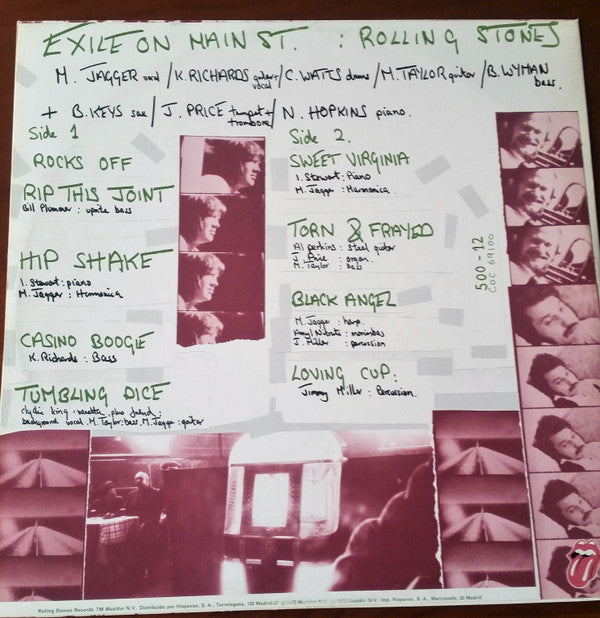 EXILE ON MAIN ST. : ROLLING STONES
M. JAGGER vocal / K. RICHARDS guitar + vocal / C. WATTS drums / M. TAYLOR guitar / B. WYMAN bass.
+ B. KEYS sax / J. PRICE trumpet + trombone / N. HOPKINS piano.
Side 1
ROCKS OFF
RIP THIS JOINT
Bill Plummer : uprite bass
HIP SHAKE
I. Stewart : piano
M. Jagger : Harmonica
CASINO BOOGIE
K. Richards : Bass
TUMBLING DICE
clydie king . vanetta . plus friend .
background vocal . M. Taylor : bass . M. Jagger : guitar
Side 2.
SWEET VIRGINIA
I. Stewart : Piano
M. Jagger : Harmonica .
TORN & FRAYED
Al perkins : steel guitar
J. Price : organ .
M. Taylor : bass
BLACK ANGEL
M. Jagger : harp .
Amyl Nitrate : marimbas
J. Miller : percussion
LOVING CUP :
Jimmy Miller : Percussion .
500-12
COC 69100
Rolling Stones Records TM Musidor N.V. Distribuido por Hispavox, S. A., Torrelaguna, 102 Madrid-27 Musidor N.V. Imp. Hispavox, S. A., Madrid